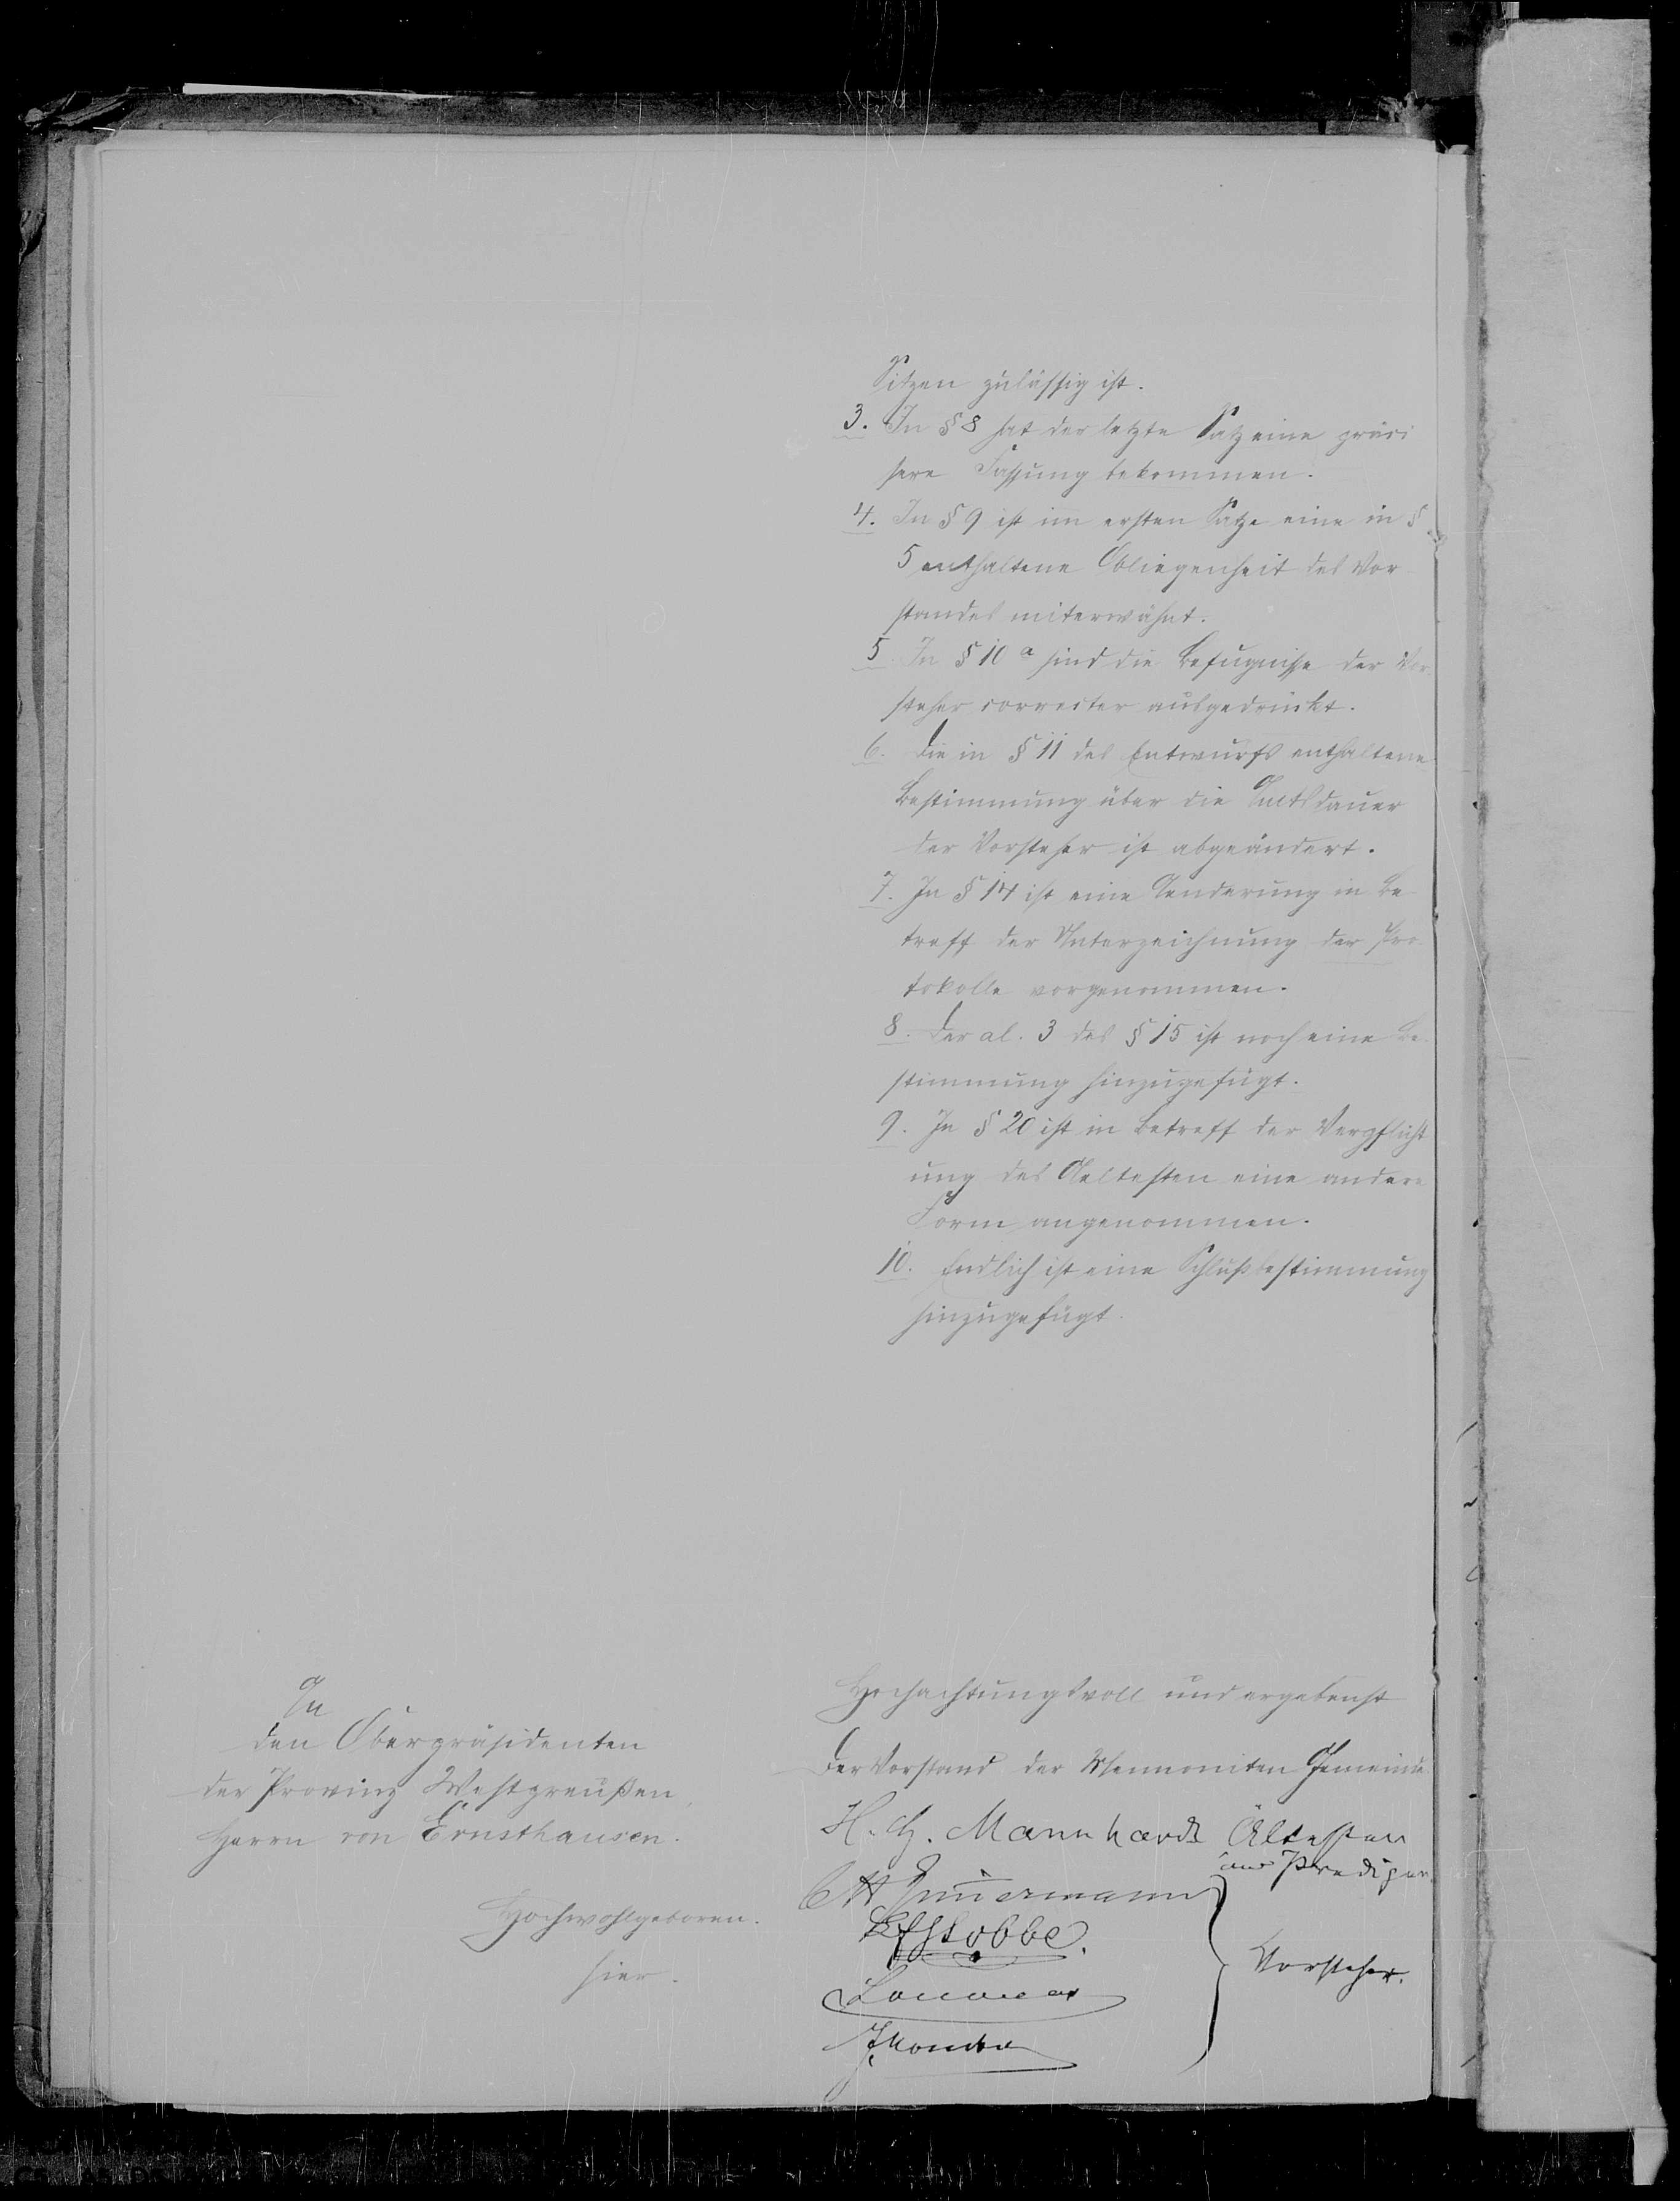 Sitzen zulässig ist.
3. In § 8 hat der letzte Satz eine präci
sere Fassung bekommen.
4. In § 9 ist im ersten Satze eine in §
5 enthaltene Obliegenheit des Vor
standes miterwähnt.
5. In § 10 a sind die Befugnisse der Vor
steher correcter ausgedrückt.
6. Die in § 11 des Entwurfs enthaltene
Bestimmung über die Amtsdauer
der Vorsteher ist abgeändert.
7. In § 14 ist eine Aenderung in Be
treff der Unterzeichnung der Pro
tokolle vorgenommen.
8. Der al. 3 des § 15 ist noch eine Be
stimmung hinzugefügt.
9. In § 20 ist in Betreff der Verpflicht
ung des Aeltesten eine andere
Form angenommen.
10. Endlich ist eine Schlußbestimmung
hinzugefügt.
Hochachtungsvoll und ergebenst
Der Vorstand der Mennoniten Gemeinde
H. G. Mannhardt Ältester
und Prediger.
Zimmermann
Stobbe.
Vorsteher.
An
den Oberpräsidenten
der Provinz Westpreußen,
Herrn von Ernsthausen.
Hochwohlgeboren.
hier.